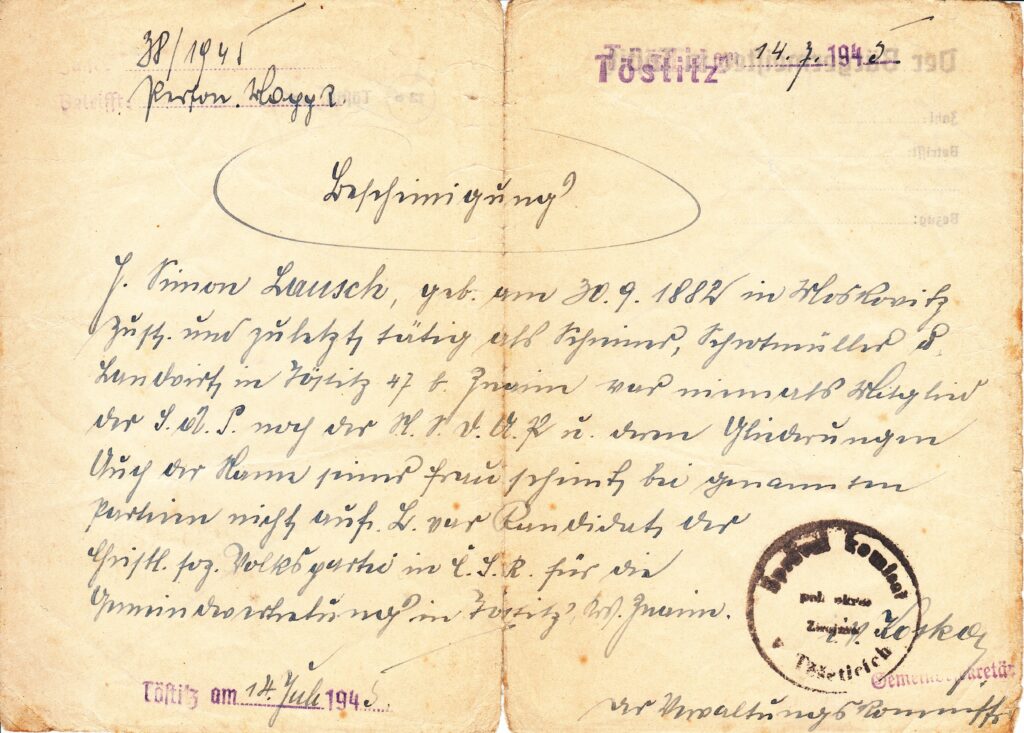 38/1945
Töstitz am 14.7.1945
Betrifft: Person.
Bescheinigung
H. Simon Lausch, geb. am 30.9.1882 in Moskovitz
zust. und zuletzt tätig als Schreiner, Schrotmüller u.
Landwirt in Töstitz 47 b. Znaim war niemals Mitglied
der S.d.P. noch der N.S.D.A.P u. deren Gliederungen
Auch der Name seiner Frau scheint bei genannten
Parteien nicht auf. L. war Kandidat der
Christl. soz. Volkspartei in Č.S.R. für die
Gemeindevertretung in Töstitz, Kr. Znaim.
Töstitz am 14. Juli 1945
pol. okres
v Těšeticích
Gemeindesekretär
der Verwaltungskommission
Der Bürgermeister
Zahl:
Betrifft:
Bezug: